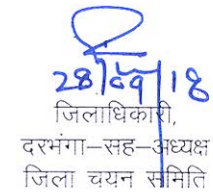 28/09/18
जिलाधिकारी,
दरभंगा–सह–अध्यक्ष
जिला चयन समिति